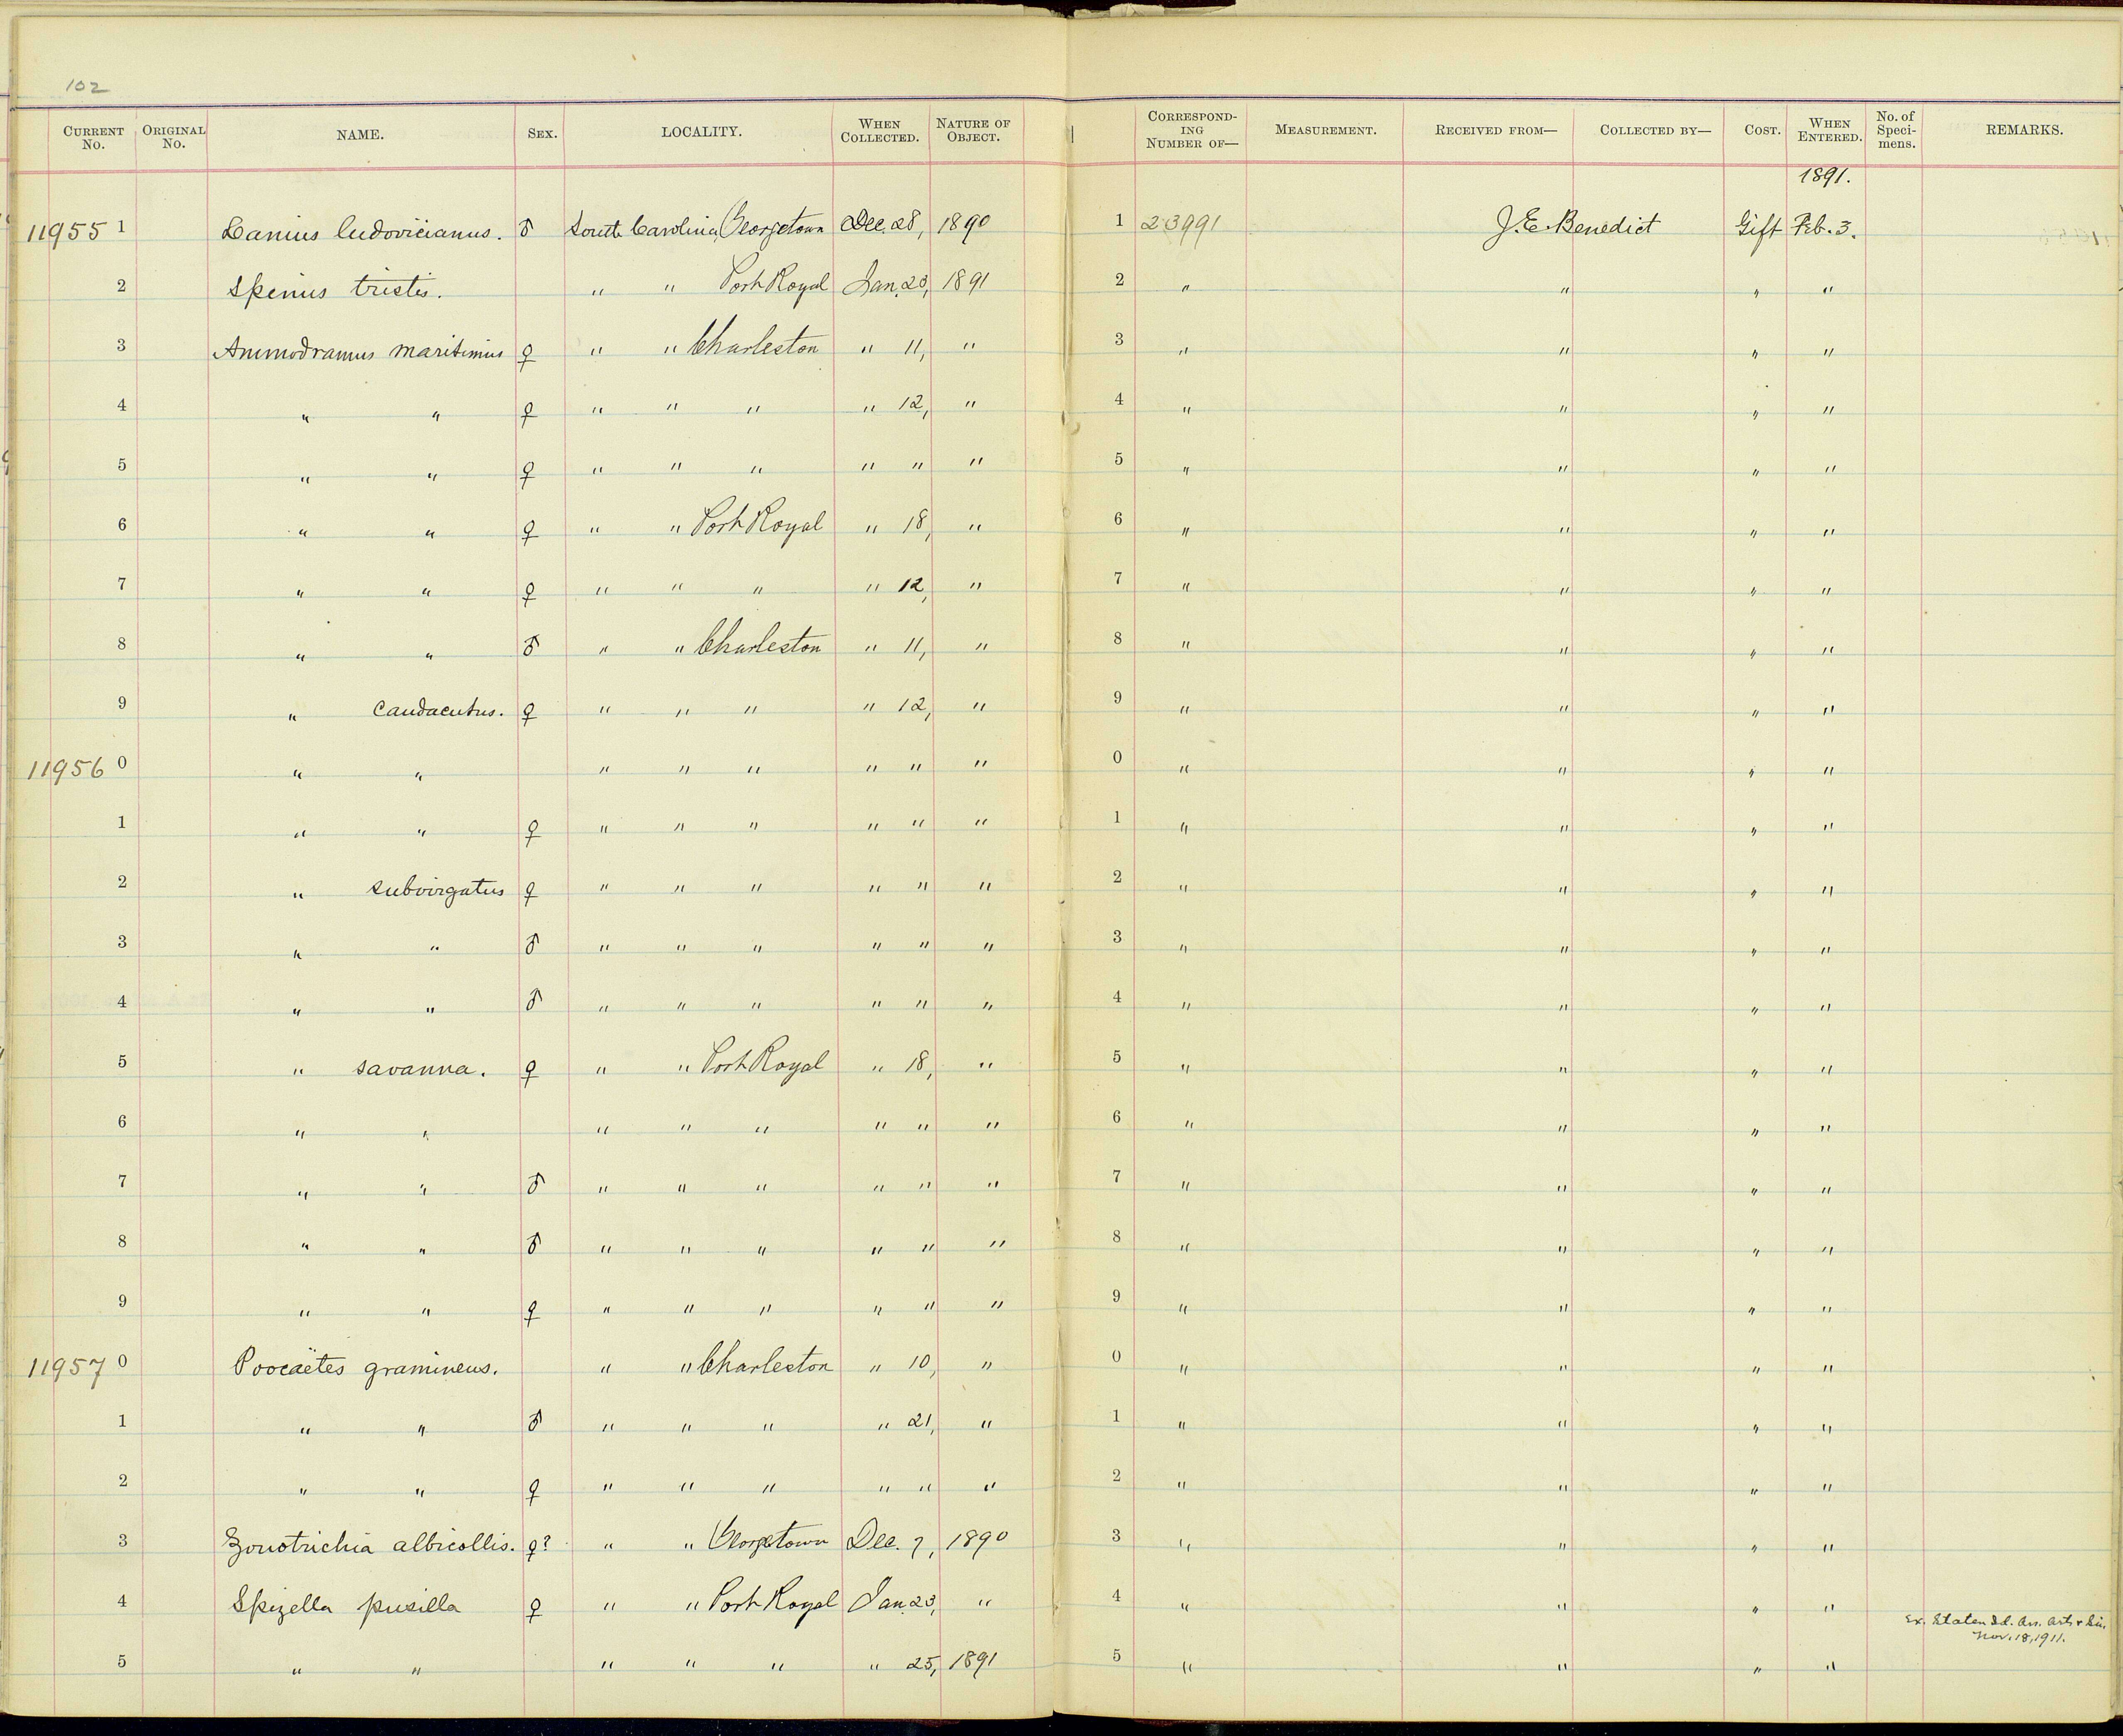 102
CURRENT No. ORIGINAL No. NAME. SEX. LOCALITY. WHEN COLLECTED. NATURE OF OBJECT. CORRESPONDING NUMBER OF— MEASUREMENT. RECEIVED FROM— COLLECTED BY— COST. WHEN ENTERED. No. of Specimens. REMARKS.
1891.
11955 1 Lanius ludovicianus. ♂ South Carolina, Georgetown Dec. 28, 1890 1 23991 J. E. Benedict Gift Feb. 3.
2 Spinus tristis. " " Port Royal Jan. 23, 1891 2 " " " "
3 Ammodramus maritimus ♀ " " Charleston " 11, " 3 " " " "
4 " " ♀ " " " " 12, " 4 " " " "
5 " " ♀ " " " " " " 5 " " " "
6 " " ♀ " " Port Royal " 18, " 6 " " " "
7 " " ♀ " " " " 12, " 7 " " " "
8 " " ♂ " " Charleston " 11, " 8 " " " "
9 " caudacutus. ♀ " " " " 12, " 9 " " " "
11956 0 " " " " " " " " 0 " " " "
1 " " ♀ " " " " " " 1 " " " "
2 " subvirgatus ♀ " " " " " " 2 " " " "
3 " " ♂ " " " " " " 3 " " " "
4 " " ♂ " " " " " " 4 " " " "
5 " savanna. ♀ " " Port Royal " 18, " 5 " " " "
6 " " " " " " " " 6 " " " "
7 " " ♂ " " " " " " 7 " " " "
8 " " ♂ " " " " " " 8 " " " "
9 " " ♀ " " " " " " 9 " " " "
11957 0 Poocaëtes gramineus. " " Charleston " 10, " 0 " " " "
1 " " ♂ " " " " 21, " 1 " " " "
2 " " ♀ " " " " " " 2 " " " "
3 Zonotrichia albicollis. ♀? " " Georgetown Dec. 7, 1890 3 " " " "
4 Spizella pusilla ♀ " " Port Royal Jan. 23, " 4 " " " "
Ex. Staten Id. Ass. Arts & Sci.
Nov. 18, 1911.
5 " " " " " " 25, 1891 5 " " " "